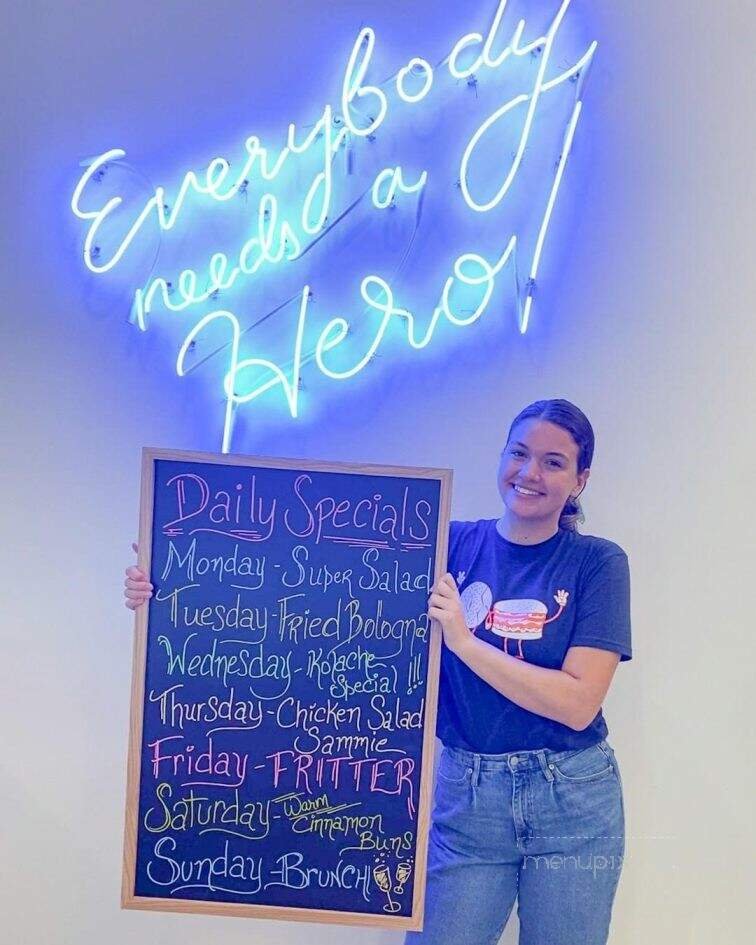 Everybody
needs a
Hero
Daily Specials
Monday - Super Salad
Tuesday - Fried Bologna
Wednesday - Kolache
Special !!!
Thursday - Chicken Salad
Sammie
Friday - FRITTER
Saturday - Warm
Cinnamon
Buns
Sunday - BRUNCH
menupix